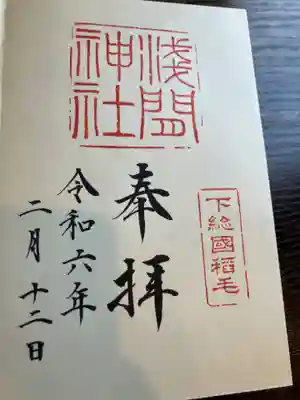 浅間
神社
下総國稲毛
奉拝
令和六年
二月十二日